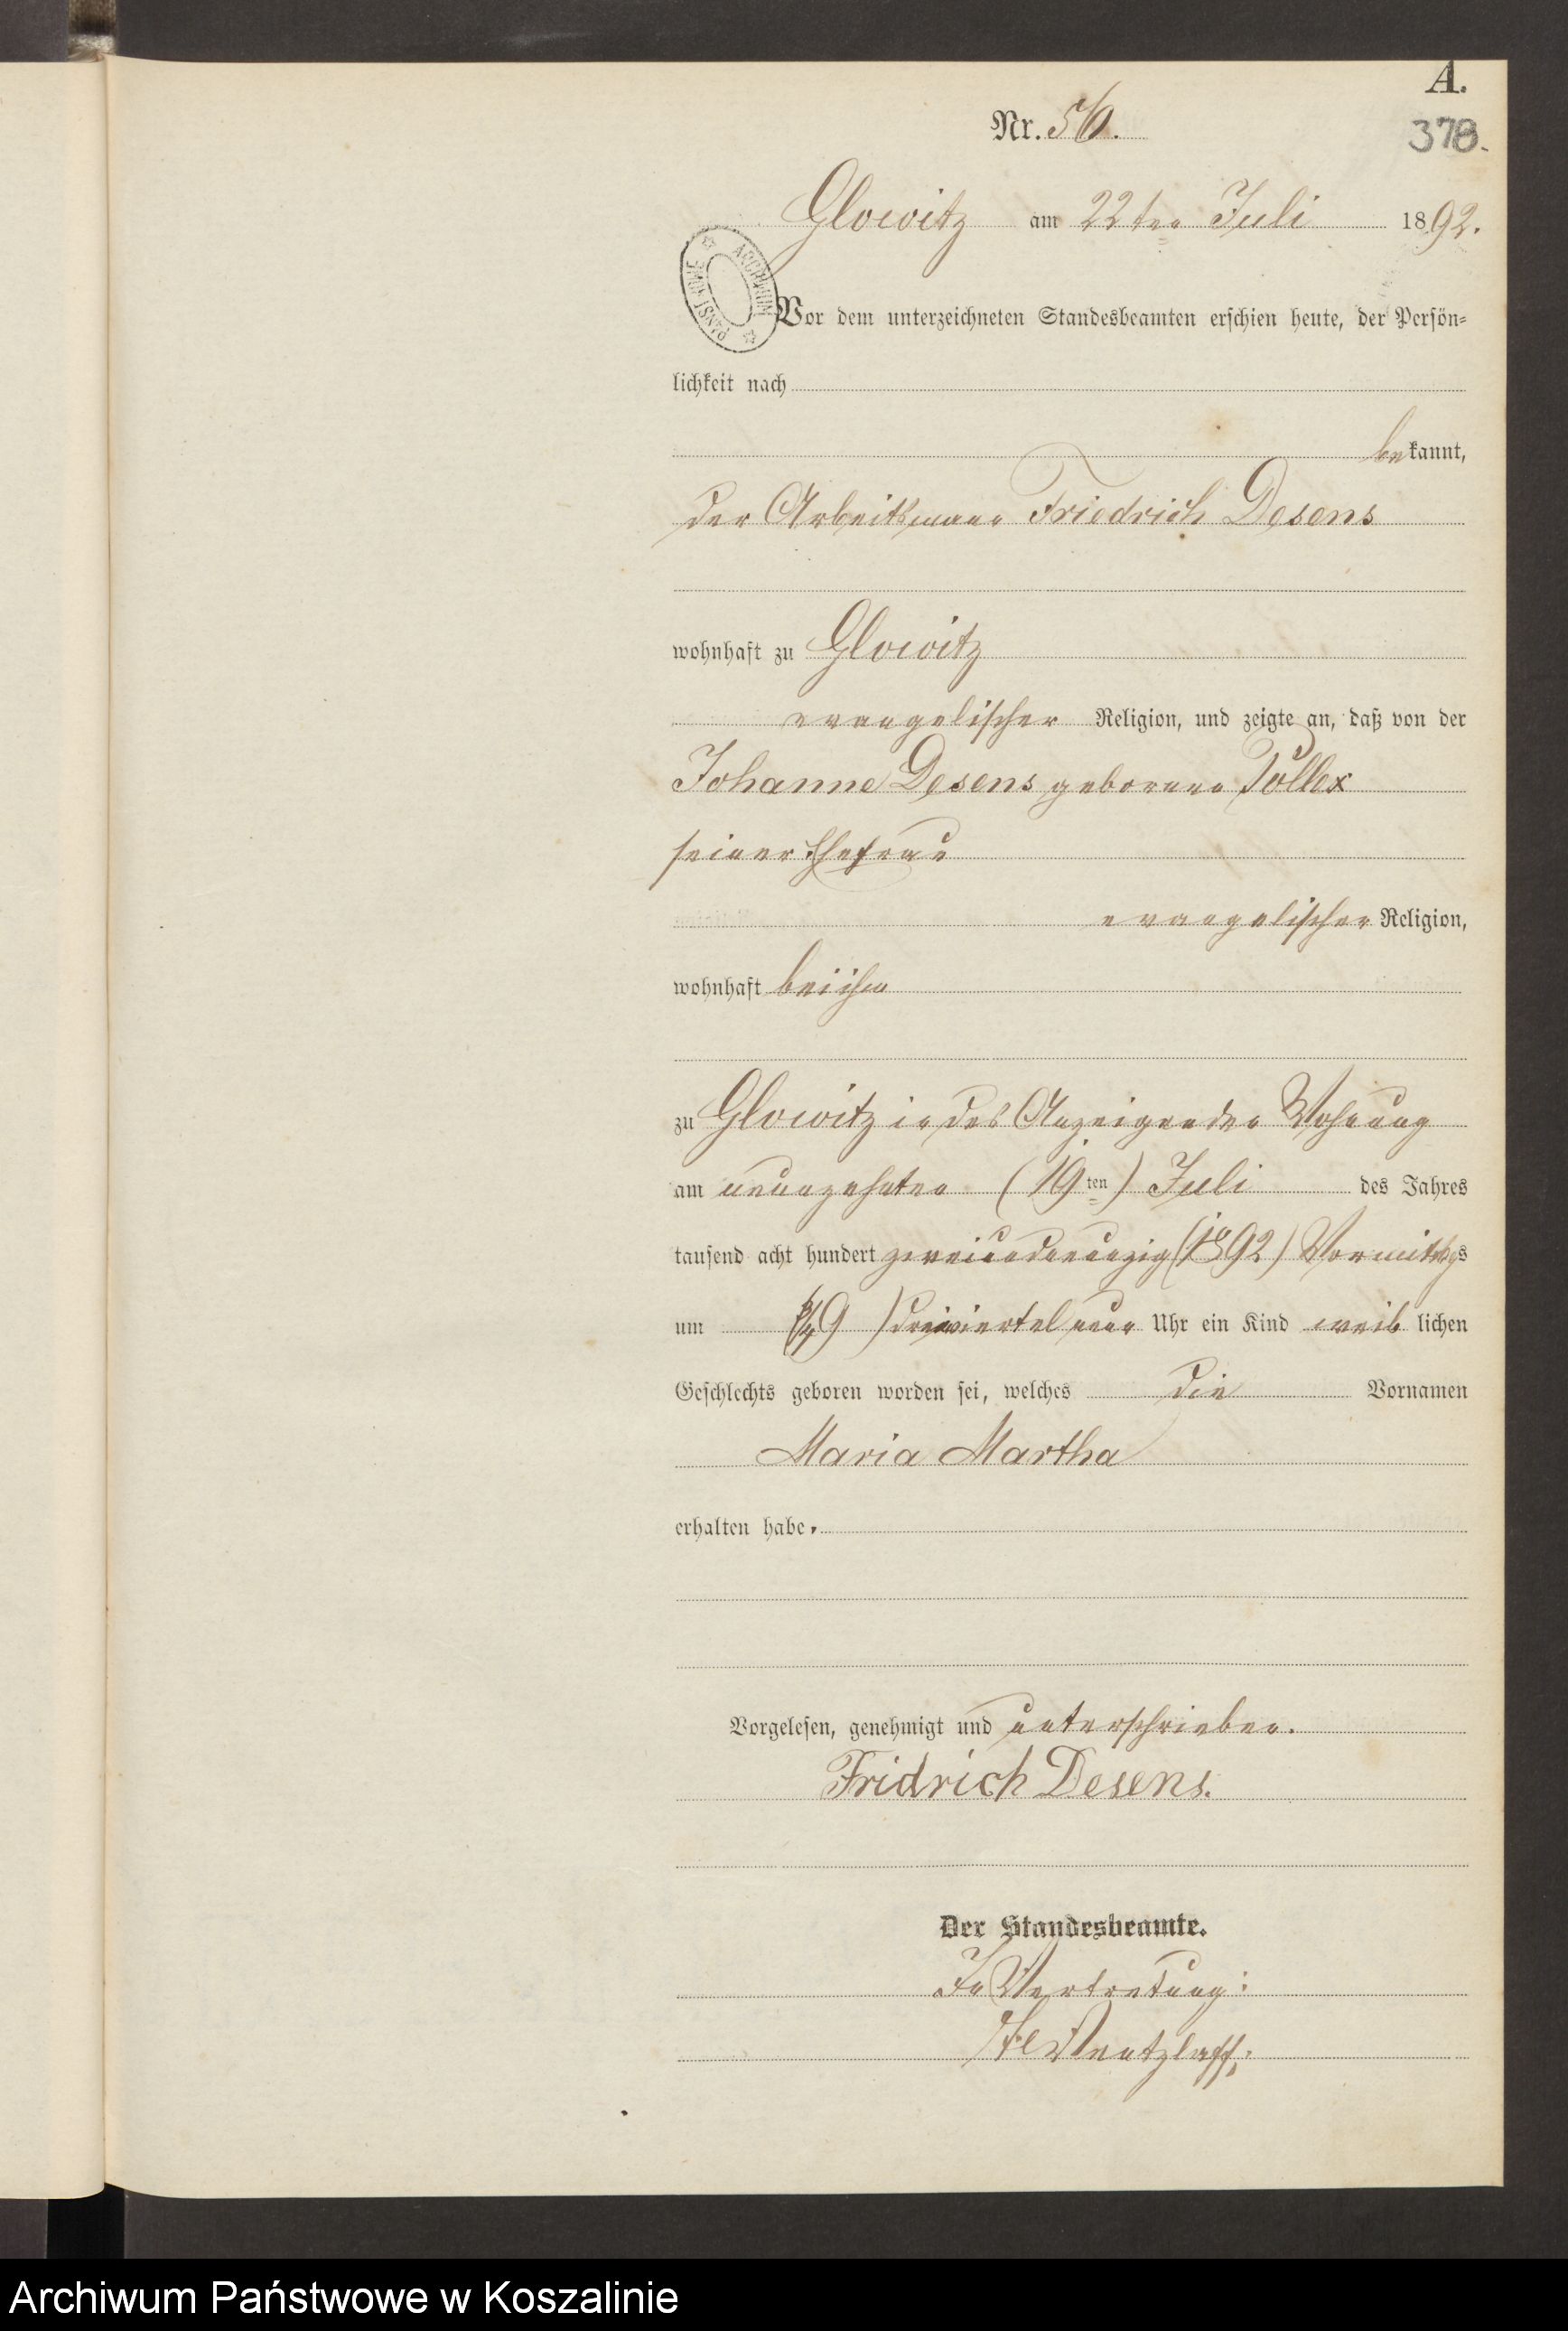 A.
Nr. 56.
378.
Glowitz am 22ten Juli 1892.
ARCHIWUM PAŃSTWOWE
Vor dem unterzeichneten Standesbeamten erschien heute, der Persön-
lichkeit nach
bekannt,
der Arbeitsmann Friedrich Desens
wohnhaft zu Glowitz
evangelischer Religion, und zeigte an, daß von der
Johanne Desens geborene Pollex
seiner Ehefrau
evangelischer Religion,
wohnhaft bei ihm
zu Glowitz in des Anzeigenden Wohnung
am neunzehnten (19ten) Juli des Jahres
tausend acht hundert zweiundneunzig (1892) Vormittags
um (3/4 9) dreiviertel neun Uhr ein Kind weiblichen
Geschlechts geboren worden sei, welches die Vornamen
Maria Martha
erhalten habe.
Vorgelesen, genehmigt und unterschrieben.
Fridrich Desens.
Der Standesbeamte.
In Vertretung:
Wentzlaff.
Archiwum Państwowe w Koszalinie